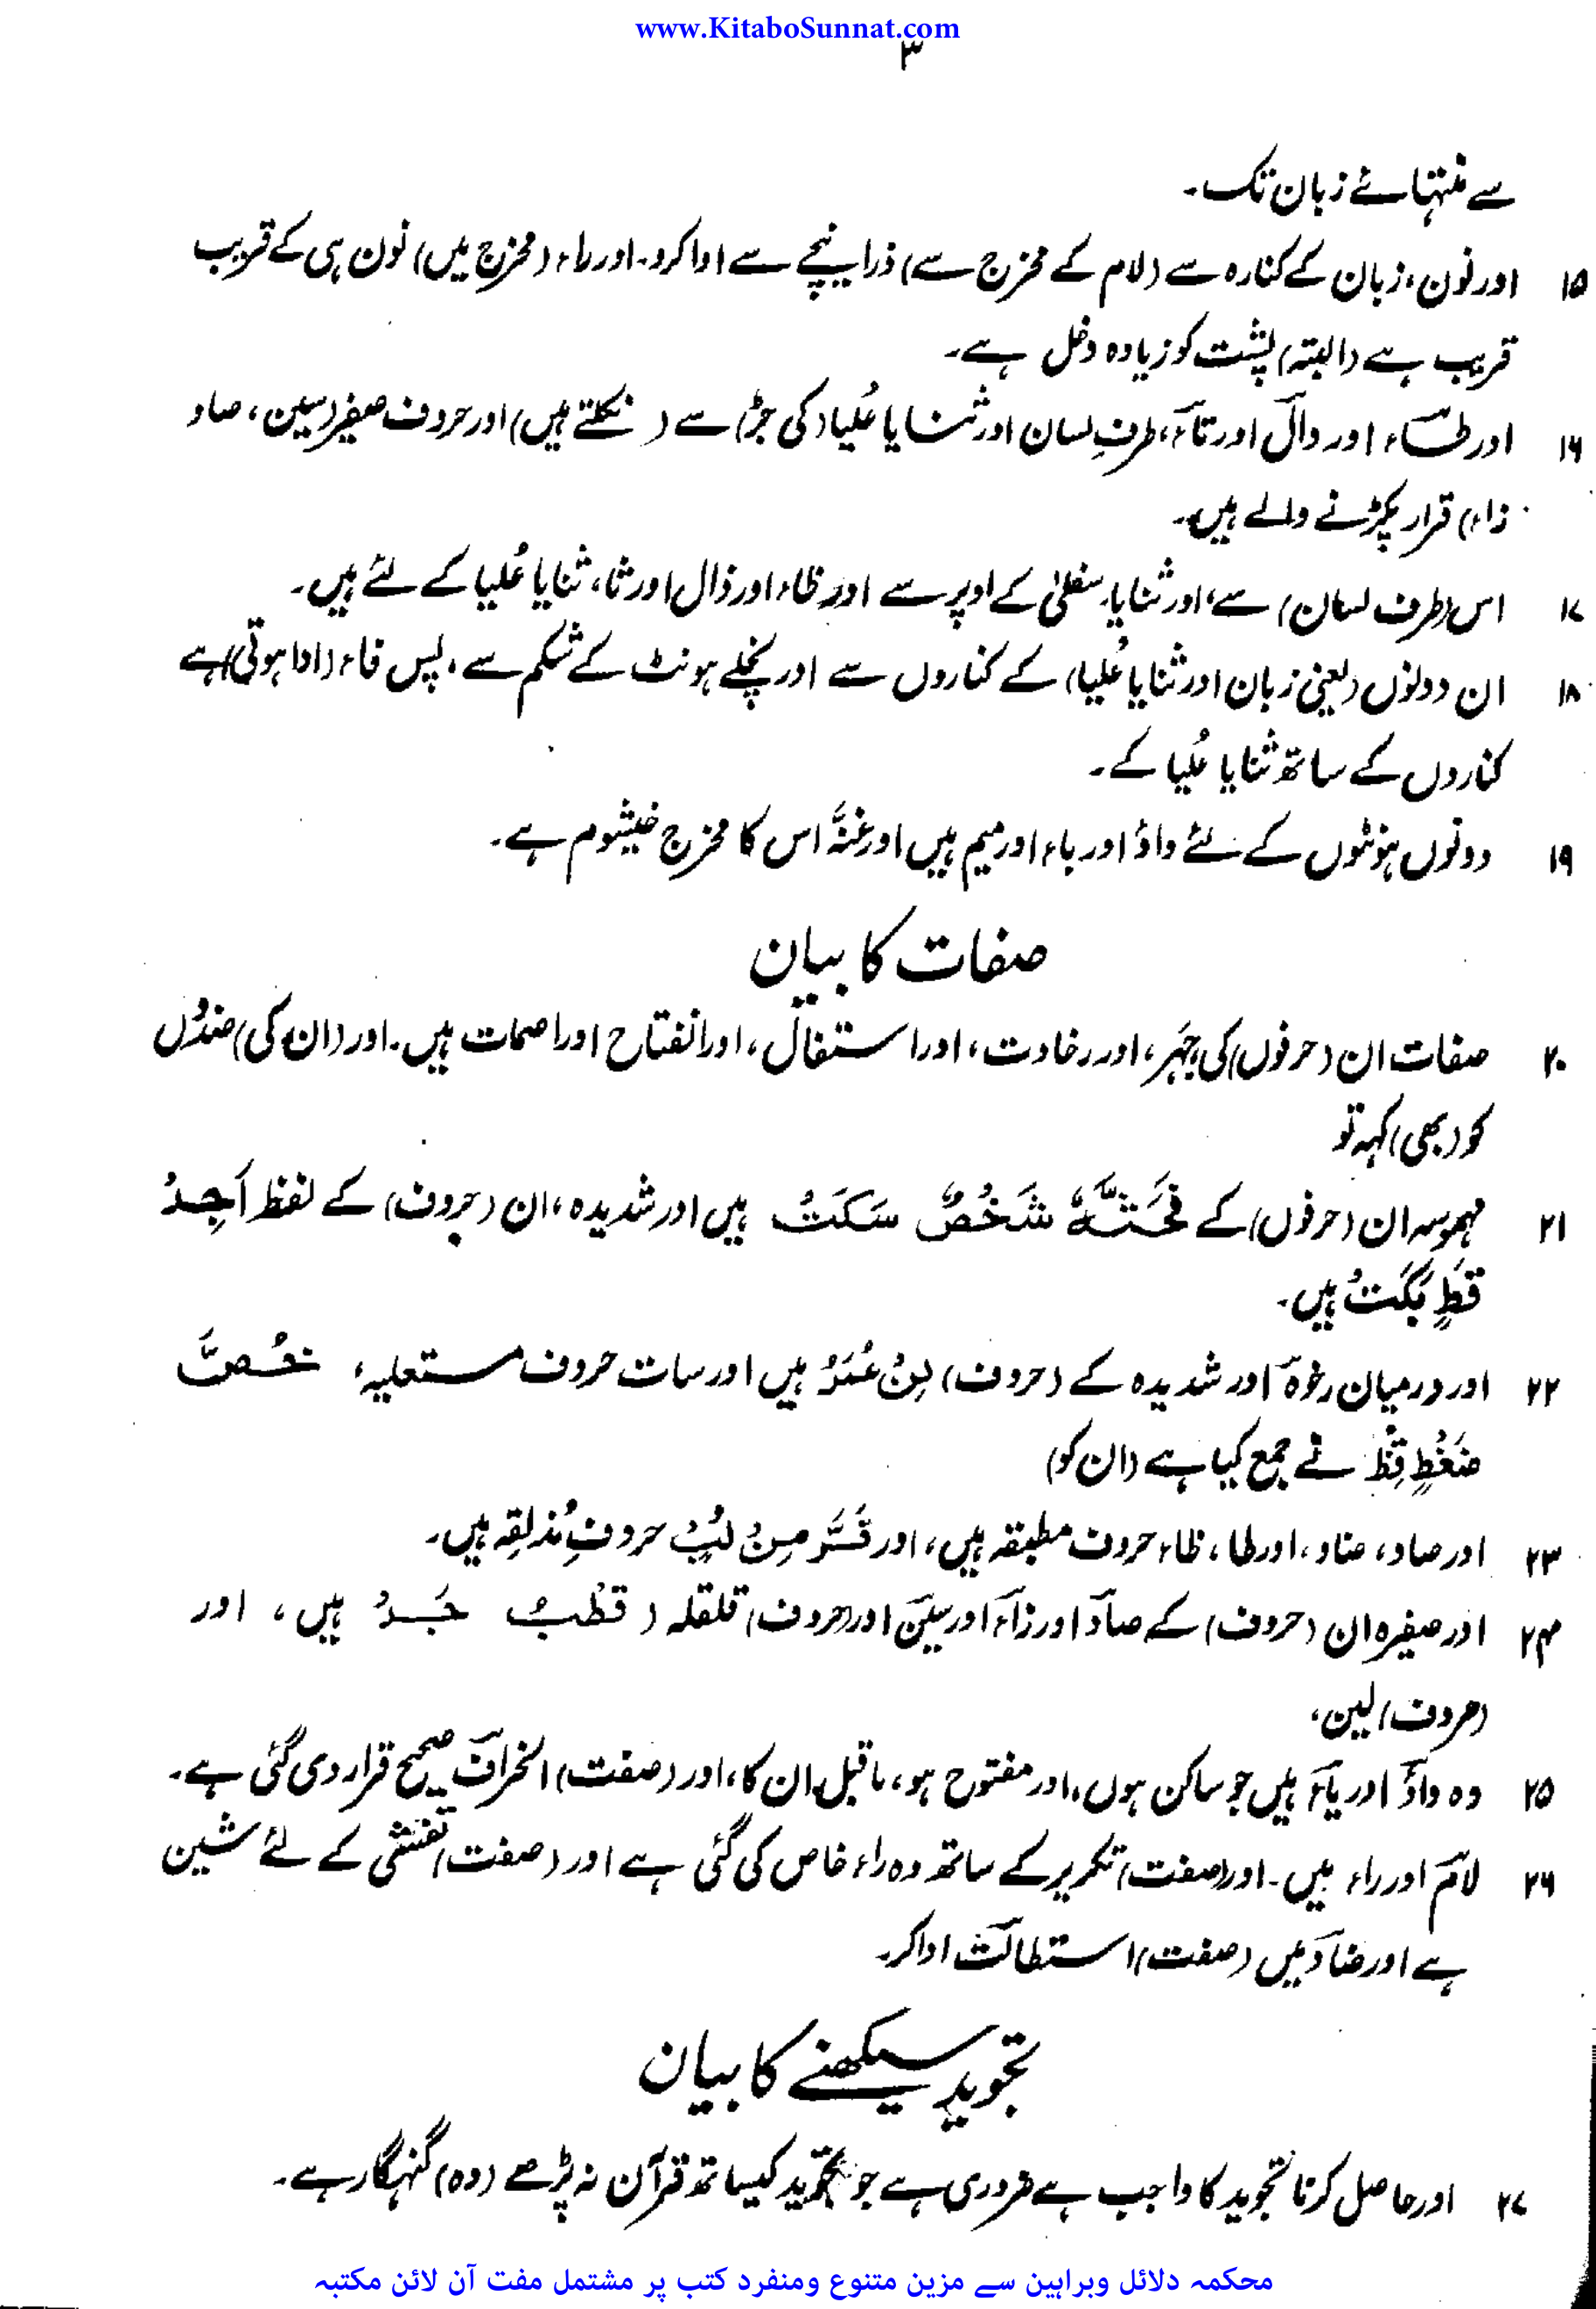 www.KitaboSunnat.com
۳
سے منتہائے زبان تک۔
۱۵ اور نون، زبان کے کنارہ سے (لام کے مخرج سے) ذرا نیچے سے ادا کرو۔ اور راء (مخرج میں) نون ہی کے قریب
قریب ہے (البتہ) پشت کو زیادہ دخل ہے۔
۱۶ اور طاء اور دال اور تاء، طرفِ لسان اور ثنایا عُلیا (کی جڑ) سے ( نکلتے ہیں) اور حروف صفیر (سین، صاد
زاء) قرار پکڑنے والے ہیں۔
۱۷ اس (طرف لسان) سے، اور ثنایا سفلیٰ کے اوپر سے اور ظاء اور ذال اور ثا، ثنایا عُلیا کے لئے ہیں۔
۱۸ ان دونوں (یعنی زبان اور ثنایا عُلیا) کے کناروں سے اور نچلے ہونٹ کے شکم سے، پس فاء (ادا ہوتی) ہے
کناروں کے ساتھ ثنایا عُلیا کے۔
۱۹ دونوں ہونٹوں کے لئے واؤ اور باء اور میم ہیں اور غنّہ اس کا مخرج خیشوم ہے۔
صفات کا بیان
۲۰ صفات ان (حرفوں) کی جہَر، اور رخاوت، اور استفال، اور انفتاح اور اصمات ہیں۔ اور (ان کی) ضدوں
کو (بھی) کہہ تو
۲۱ مہموسہ ان (حرفوں) کے فَحَثَّہٗ شَخْصٌ سَکَتْ ہیں اور شدیدہ، ان (حروف) کے لفظ اَجِدْ
قَطٍ بَکَتْ ہیں۔
۲۲ اور درمیان رخوہ اور شدیدہ کے (حروف) لِنْ عُمَرْ ہیں اور سات حروف مستعلیہ، خُصَّ
ضَغْطٍ قِظْ نے جمع کیا ہے (ان کو)
۲۳ اور صاد، ضاد، اور طا، ظاء حروف مطبقہ ہیں، اور فَرَّ مِنْ لُبِّ حروفِ مُذلِقہ ہیں۔
۲۴ اور صفیرہ ان (حروف) کے صاد اور زاء اور سین اور (حروف) قلقلہ ( قُطْبُ جَدْ ہیں، اور
(حروف) لین،
۲۵ وہ واؤ اور یاء ہیں جو ساکن ہوں، اور مفتوح ہو، ماقبل ان کا، اور (صفت) انحراف صحیح قرار دی گئی ہے۔
۲۶ لام اور راء میں۔ اور (صفت) تکریر کے ساتھ وہ راء خاص کی گئی ہے اور (صفت) تفشّی کے لئے شین
ہے اور ضاد میں (صفت) استطالت ادا کر۔
تجوید سیکھنے کا بیان
۲۷ اور حاصل کرنا تجوید کا واجب ہے ضروری ہے جو تجوید کیساتھ قرآن نہ پڑھے (وہ) گنہگار ہے۔
محکمہ دلائل وبراہین سے مزین متنوع ومنفرد کتب پر مشتمل مفت آن لائن مکتبہ